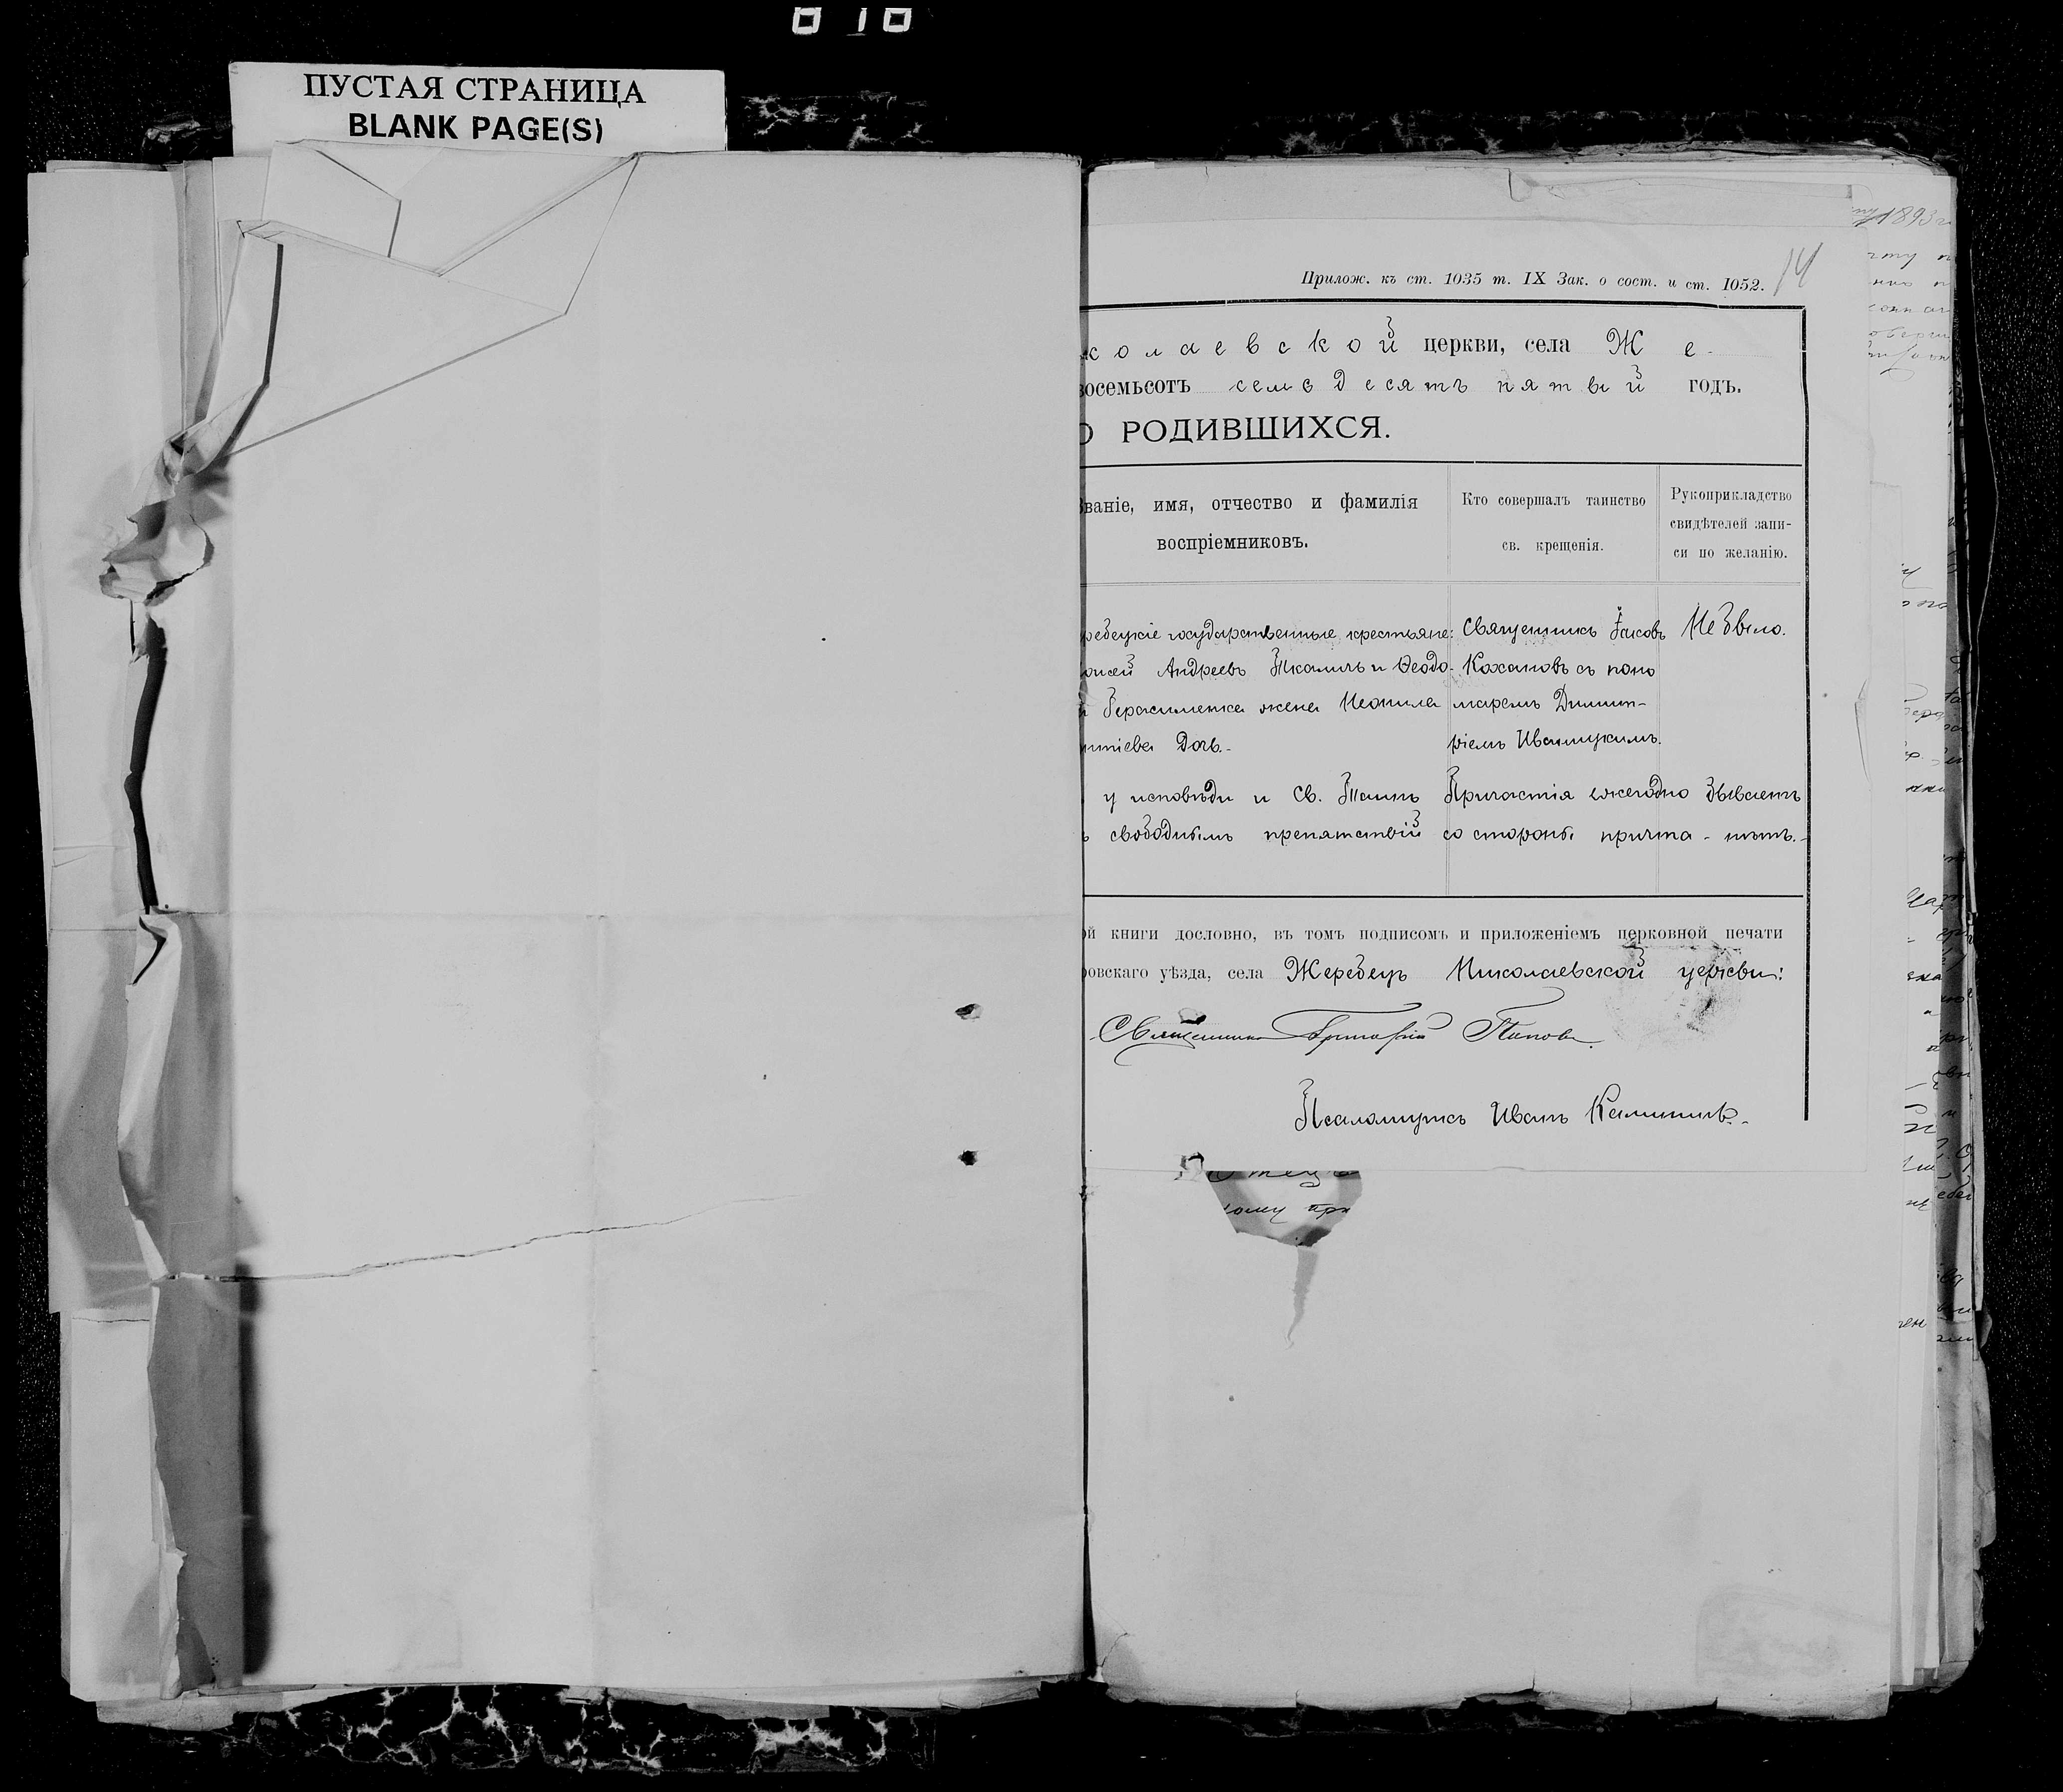 ПУСТАЯ СТРАНИЦА
BLANK PAGE(S)
Прилож. къ ст. 1035 т. IX Зак. о сост. и ст. 1052.
14
колаевской церкви, села Же-
восемьсотъ семьдесятъ пятый годъ.
О РОДИВШИХСЯ.
Званіе, имя, отчество и фамилія
воспріемниковъ.
Кто совершалъ таинство
св. крещенія.
Рукоприкладство
свидѣтелей запи-
си по желанію.
ребецкіе государственные крестьяне:
Андреевъ Ткаличъ и Ѳеодо-
Герасименка жена Неонила
Дочь.-
Священникъ Іаковъ
Кохановъ съ поно
маремъ Димит-
ріемъ Иваницкимъ.
Не было.
у исповѣди и Св. Таинъ Причастія ежегодно бываетъ
свободнымъ препятствій со стороны причта - нѣтъ.-
ой книги дословно, въ томъ подписомъ и приложеніемъ церковной печати
ровскаго уѣзда, села Жеребецъ Николаевской церкви:
Священникъ Григорій Поповъ.
Псаломщикъ Иванъ Калининъ.-
1893 г